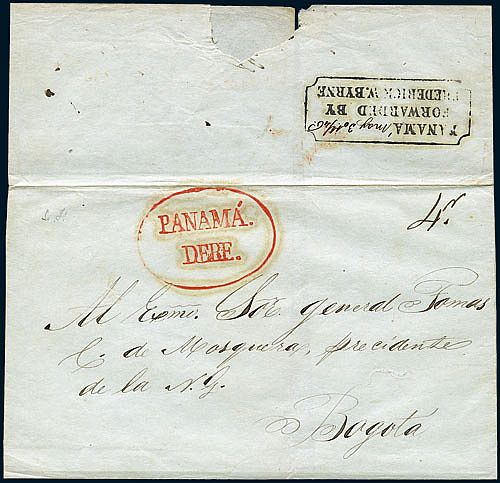 PANAMÁ.
FORWARDED BY
FREDERICK W. BYRNE
4r
PANAMÁ.
DEBE.
Al Exmo. Sor. general Tomas
C. de Mosquera, precidente
de la N. G.
Bogotá